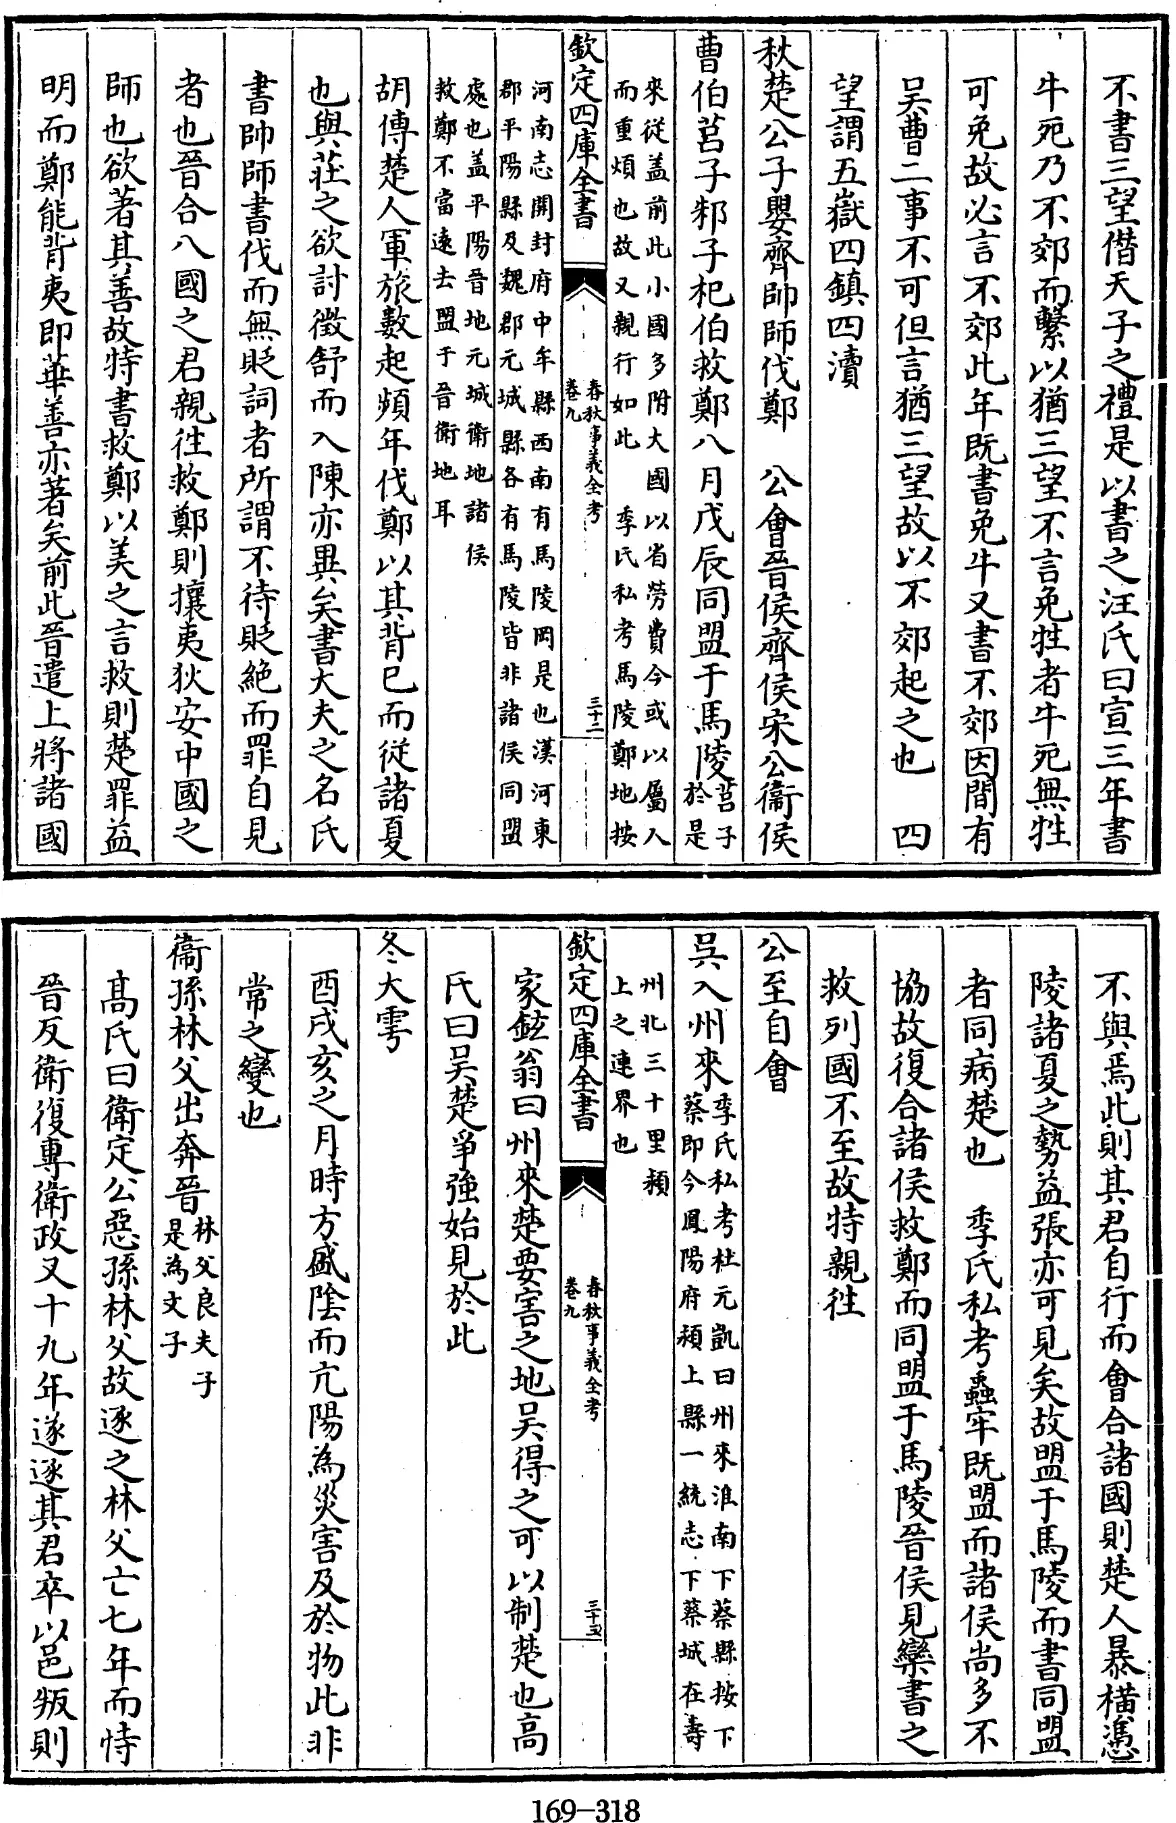 不書三望僭天子之禮是以書之汪氏曰宣三年書
牛死乃不郊而繫以猶三望不言免牲者牛死無牲
可免故必言不郊此年既書免牛又書不郊因間有
吴曹二事不可但言猶三望故以不郊起之也　四
望謂五嶽四鎮四瀆
秋楚公子嬰齊帥師伐鄭　公會晉侯齊侯宋公衞侯
曹伯莒子邾子杞伯救鄭八月戊辰同盟于馬陵莒子
於是
來從葢前此小國多附大國以省勞費今或以屬人
而重煩也故又親行如此　季氏私考馬陵鄭地按
欽定四庫全書
春秋事義全考
卷九
三十二
河南志開封府中牟縣西南有馬陵岡是也漢河東
郡平陽縣及魏郡元城縣各有馬陵皆非諸侯同盟
處也葢平陽晉地元城衛地諸侯
救鄭不當遠去盟于晉衛地耳
胡傳楚人軍旅數起頻年伐鄭以其背已而從諸夏
也與莊之欲討徵舒而入陳亦異矣書大夫之名氏
書帥師書伐而無貶詞者所謂不待貶絶而罪自見
者也晉合八國之君親往救鄭則攘夷狄安中國之
師也欲著其善故特書救鄭以美之言救則楚罪益
明而鄭能背夷即華善亦著矣前此晉遣上將諸國
不與焉此則其君自行而會合諸國則楚人暴橫憑
陵諸夏之勢益張亦可見矣故盟于馬陵而書同盟
者同病楚也　季氏私考蟲牢既盟而諸侯尚多不
協故復合諸侯救鄭而同盟于馬陵晉侯見欒書之
救列國不至故特親往
公至自會
吳入州來季氏私考杜元凱曰州來淮南下蔡縣按下
蔡即今鳳陽府潁上縣一統志下蔡城在壽
州北三十里潁
上之連界也
欽定四庫全書
春秋事義全考
卷九
三十三
家鉉翁曰州來楚要害之地吴得之可以制楚也高
氏曰吴楚爭強始見於此
冬大雩
酉戌亥之月時方盛陰而亢陽為災害及於物此非
常之變也
衞孫林父出奔晉林父良夫子
是為文子
高氏曰衛定公惡孫林父故逐之林父亡七年而恃
晉反衛復專衛政又十九年遂逐其君卒以邑叛則
169-318